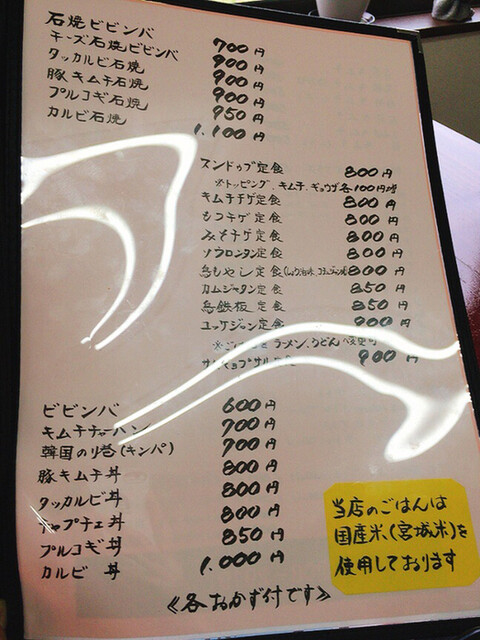 石焼ビビンバ 700円
チーズ石焼ビビンバ 900円
タッカルビ石焼 900円
豚キムチ石焼 900円
プルコギ石焼 950円
カルビ石焼 1.100円
スンドゥブ定食 800円
※トッピング、キムチ、ギョウザ各100円増
キムチチゲ定食 800円
もつチゲ定食 800円
みそチゲ定食 800円
ソウロンタン定食 800円
もやし定食 800円
カムジャタン定食 850円
鉄板定食 850円
ユッケジャン定食 900円
ラーメン、うどんへ変更可
900円
ビビンバ 600円
キムチチャーハン 700円
韓国のり巻(キンパ) 700円
豚キムチ丼 800円
タッカルビ丼 800円
チャプチェ丼 800円
プルコギ丼 850円
カルビ丼 1.000円
≪各おかず付です≫
当店のごはんは
国産米、(宮城米)を
使用しております